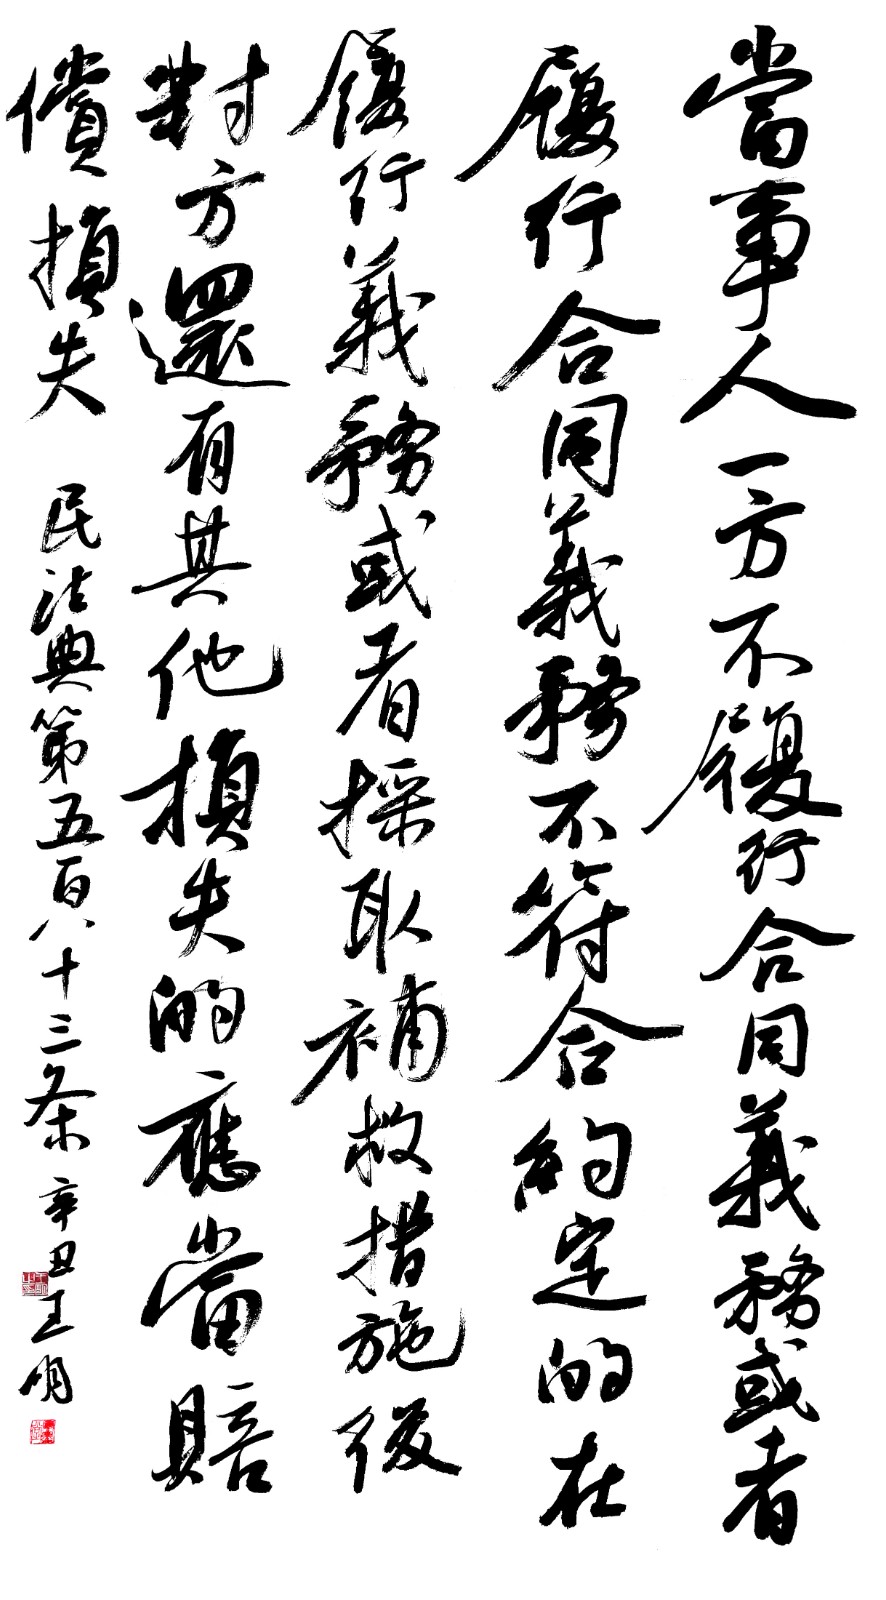 當事人一方不履行合同義務或者
履行合同義務不符合約定的在
履行義務或者採取補救措施後
對方還有其他損失的應當賠
償損失 民法典第五百八十三条 辛丑王明